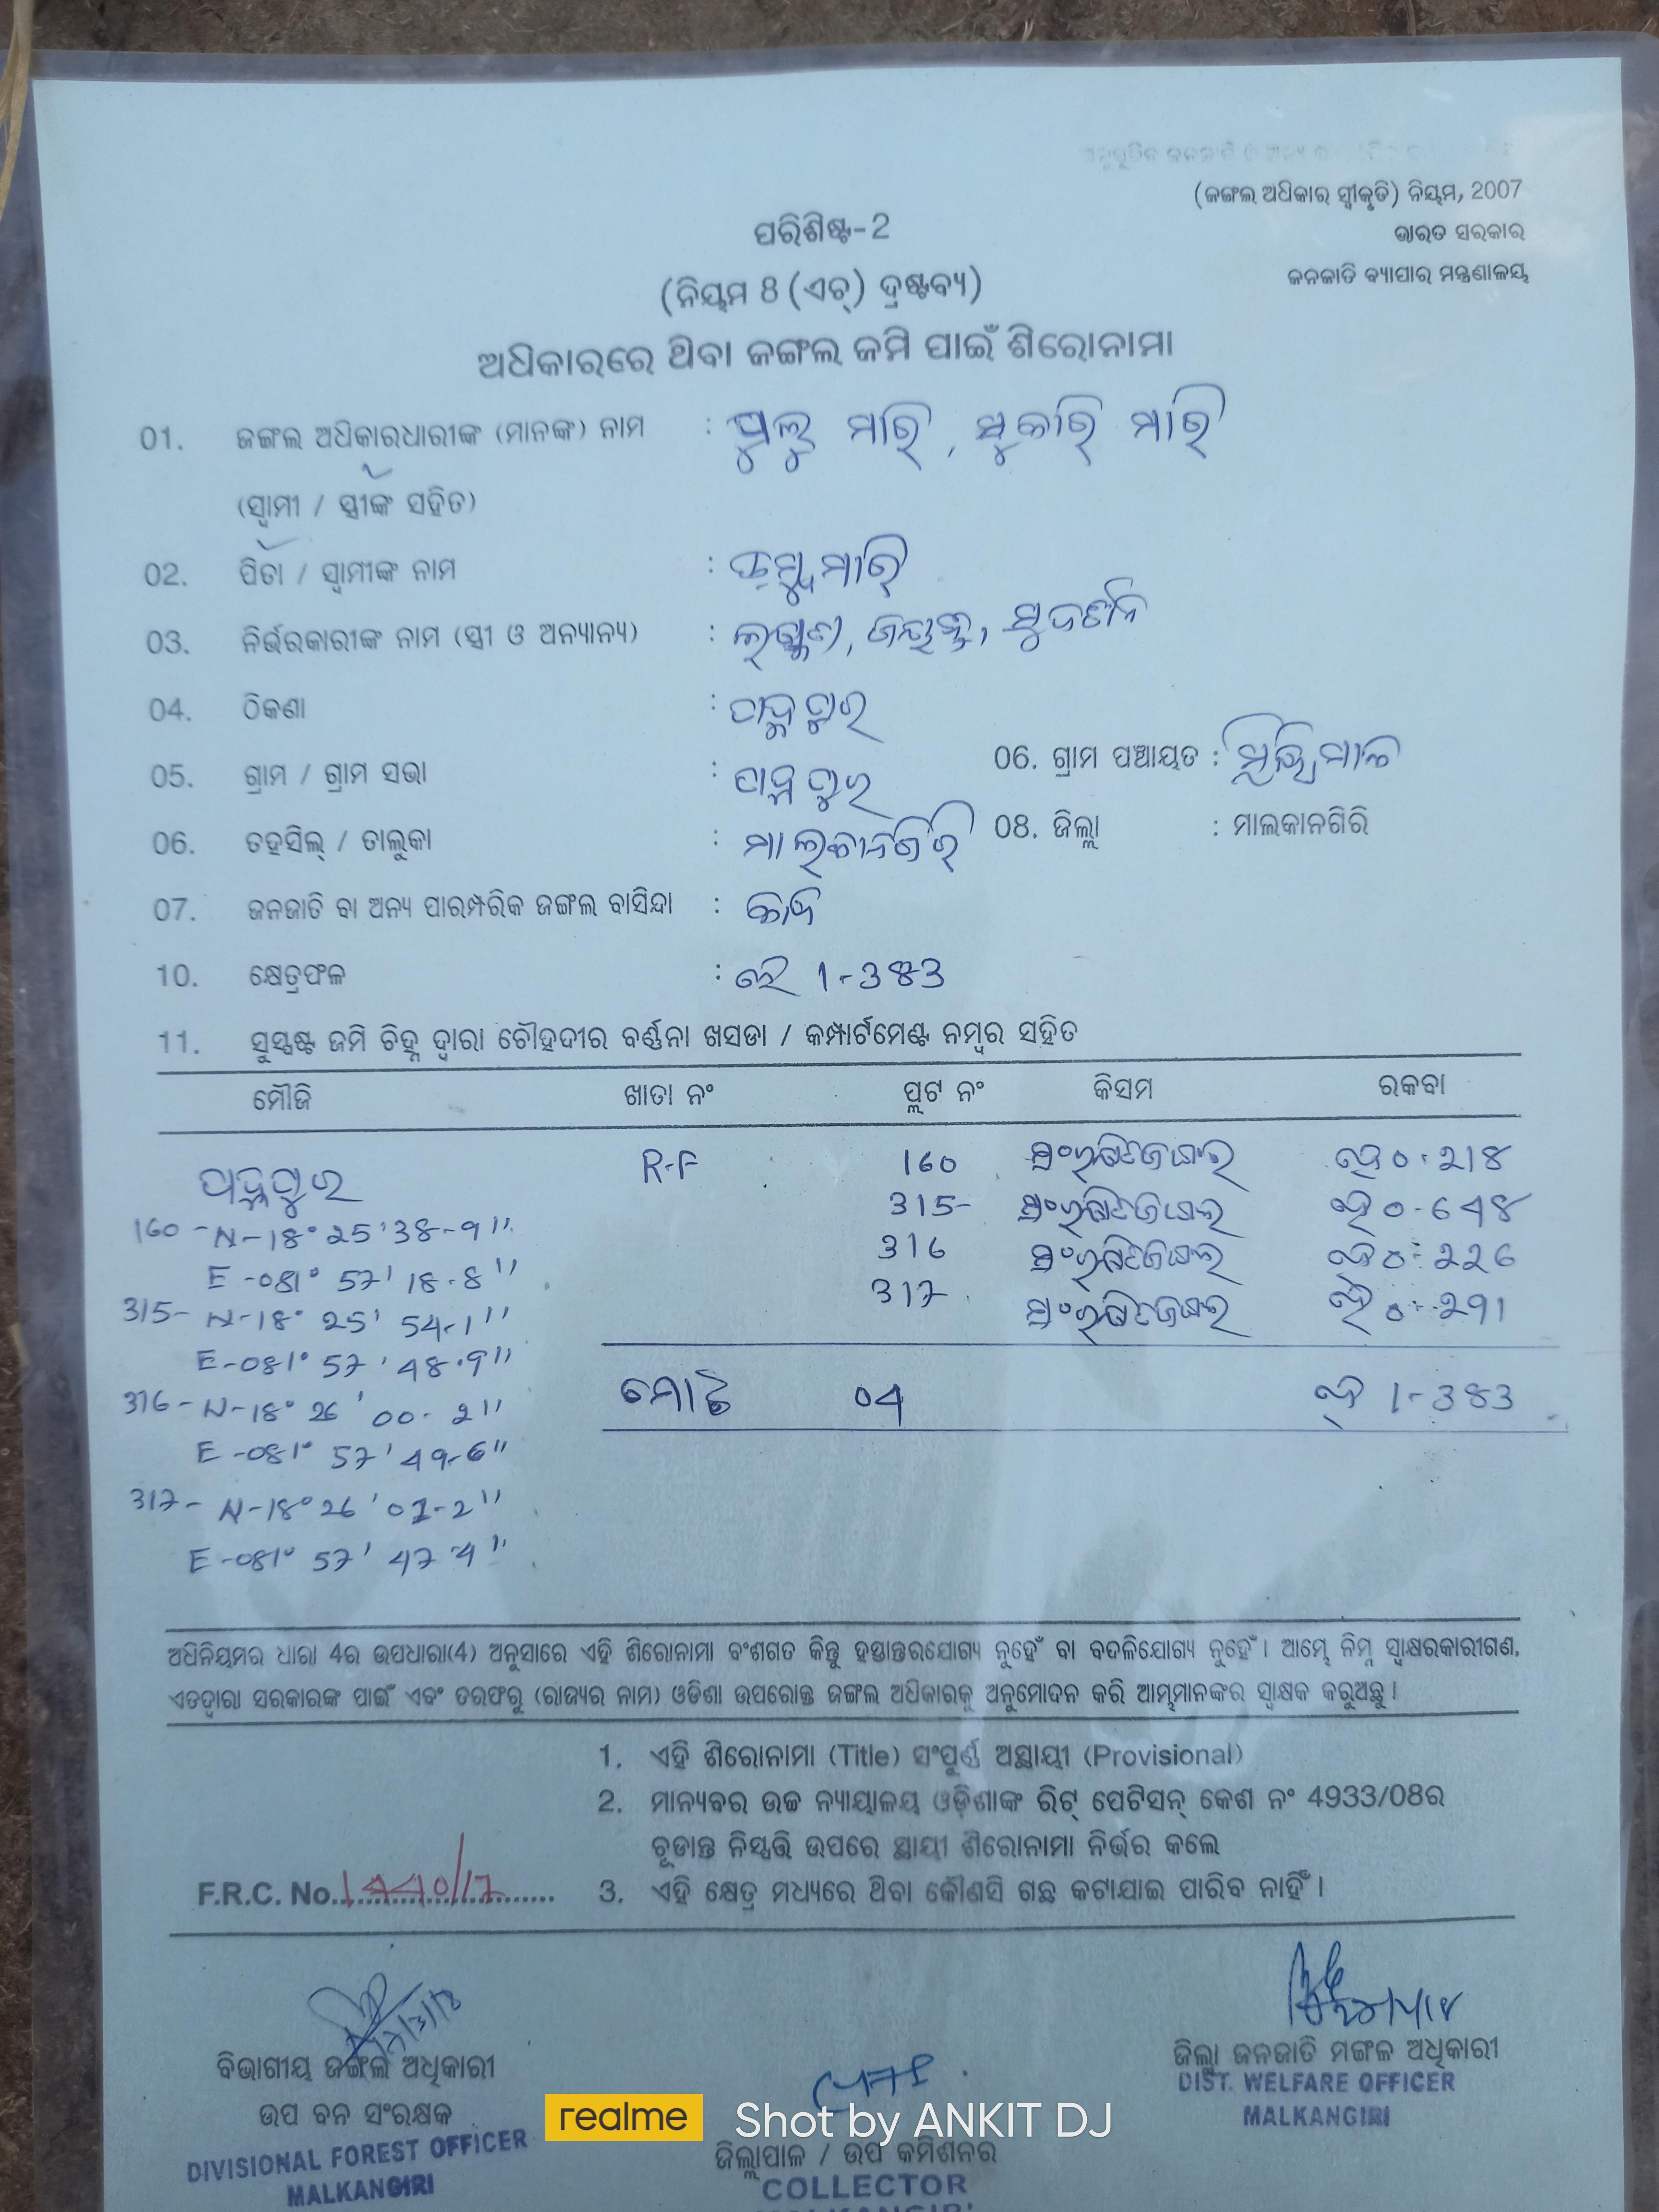 (ଜଙ୍ଗଲ ଅଧିକାର ସ୍ୱୀକୃତି) ନିୟମ, 2007
ଭାରତ ସରକାର
ଜନଜାତି ବ୍ୟାପାର ମନ୍ତ୍ରଣାଳୟ
ପରିଶିଷ୍ଟ-2
(ନିୟମ 8 (ଏଚ୍) ଦ୍ରଷ୍ଟବ୍ୟ)
ଅଧିକାରରେ ଥିବା ଜଙ୍ଗଲ ଜମି ପାଇଁ ଶିରୋନାମା
01. ଜଙ୍ଗଲ ଅଧିକାରଧାରୀଙ୍କ (ମାନଙ୍କ) ନାମ : ମାରି, ସୁକରି ମାରି
(ସ୍ୱାମୀ / ସ୍ତ୍ରୀଙ୍କ ସହିତ)
02. ପିତା / ସ୍ୱାମୀଙ୍କ ନାମ : ମାରି
03. ନିର୍ଭରକାରୀଙ୍କ ନାମ (ସ୍ତ୍ରୀ ଓ ଅନ୍ୟାନ୍ୟ) : ଲକ୍ଷ୍ମଣ, ଜୟନ୍ତ, ସୁଦର୍ଶନ
04. ଠିକଣା :
05. ଗ୍ରାମ / ଗ୍ରାମ ସଭା : 06. ଗ୍ରାମ ପଞ୍ଚାୟତ :
06. ତହସିଲ୍ / ତାଲୁକା : ମାଲକାନଗିରି 08. ଜିଲ୍ଲା : ମାଲକାନଗିରି
07. ଜନଜାତି ବା ଅନ୍ୟ ପାରମ୍ପରିକ ଜଙ୍ଗଲ ବାସିନ୍ଦା :
10. କ୍ଷେତ୍ରଫଳ : ହେ 1-383
11. ସୁସ୍ପଷ୍ଟ ଜମି ଚିହ୍ନ ଦ୍ୱାରା ଚୌହଦୀର ବର୍ଣ୍ଣନା ଖସଡା / କମ୍ପାର୍ଟମେଣ୍ଟ ନମ୍ବର ସହିତ
ମୌଜି ଖାତା ନଂ ପ୍ଲଟ ନଂ କିସମ ରକବା
R-F 160 ସଂରକ୍ଷିତ ଜଙ୍ଗଲ ହେ 0.218
315 ସଂରକ୍ଷିତ ଜଙ୍ଗଲ ହେ 0-648
316 ସଂରକ୍ଷିତ ଜଙ୍ଗଲ ହେ 0.226
317 ସଂରକ୍ଷିତ ଜଙ୍ଗଲ ହେ 0.291
ମୋଟ 04 ହେ 1-383
160 - N-18° 25' 38-9"
E-081° 57' 18.8"
315- N-18° 25' 54-1"
E-081° 57' 48.9"
316- N-18° 26' 00.2"
E-081° 57' 49-6"
317- N-18° 26' 02-2"
E-081° 57' 47.4"
ଅଧିନିୟମର ଧାରା 4ର ଉପଧାରା(4) ଅନୁସାରେ ଏହି ଶିରୋନାମା ବଂଶଗତ କିନ୍ତୁ ହସ୍ତାନ୍ତରଯୋଗ୍ୟ ନୁହେଁ ବା ବଦଳିଯୋଗ୍ୟ ନୁହେଁ। ଆମ୍ଭେ ନିମ୍ନ ସ୍ୱାକ୍ଷରକାରୀଗଣ,
ଏତଦ୍ୱାରା ସରକାରଙ୍କ ପାଇଁ ଏବଂ ତରଫରୁ (ରାଜ୍ୟର ନାମ) ଓଡିଶା ଉପରୋକ୍ତ ଜଙ୍ଗଲ ଅଧିକାରକୁ ଅନୁମୋଦନ କରି ଆମ୍ଭମାନଙ୍କର ସ୍ୱାକ୍ଷକ କରୁଅଛୁ।
1. ଏହି ଶିରୋନାମା (Title) ସଂପୂର୍ଣ୍ଣ ଅସ୍ଥାୟୀ (Provisional)
2. ମାନ୍ୟବର ଉଚ୍ଚ ନ୍ୟାୟାଳୟ ଓଡ଼ିଶାଙ୍କ ରିଟ୍ ପେଟିସନ୍ କେଶ ନଂ 4933/08ର
ଚୂଡାନ୍ତ ନିସ୍ପତ୍ତି ଉପରେ ସ୍ଥାୟୀ ଶିରୋନାମା ନିର୍ଭର କଲେ
F.R.C. No. 1440/17
3. ଏହି କ୍ଷେତ୍ର ମଧ୍ୟରେ ଥିବା କୌଣସି ଗଛ କଟାଯାଇ ପାରିବ ନାହିଁ।
ବିଭାଗୀୟ ଜଙ୍ଗଲ ଅଧିକାରୀ
ଉପ ବନ ସଂରକ୍ଷକ
DIVISIONAL FOREST OFFICER
MALKANGIRI
ଜିଲ୍ଲା ଜନଜାତି ମଙ୍ଗଳ ଅଧିକାରୀ
DIST. WELFARE OFFICER
MALKANGIRI
realme Shot by ANKIT DJ
ଜିଲ୍ଲାପାଳ / ଉପ କମିଶନର
COLLECTOR
MALKANGIRI